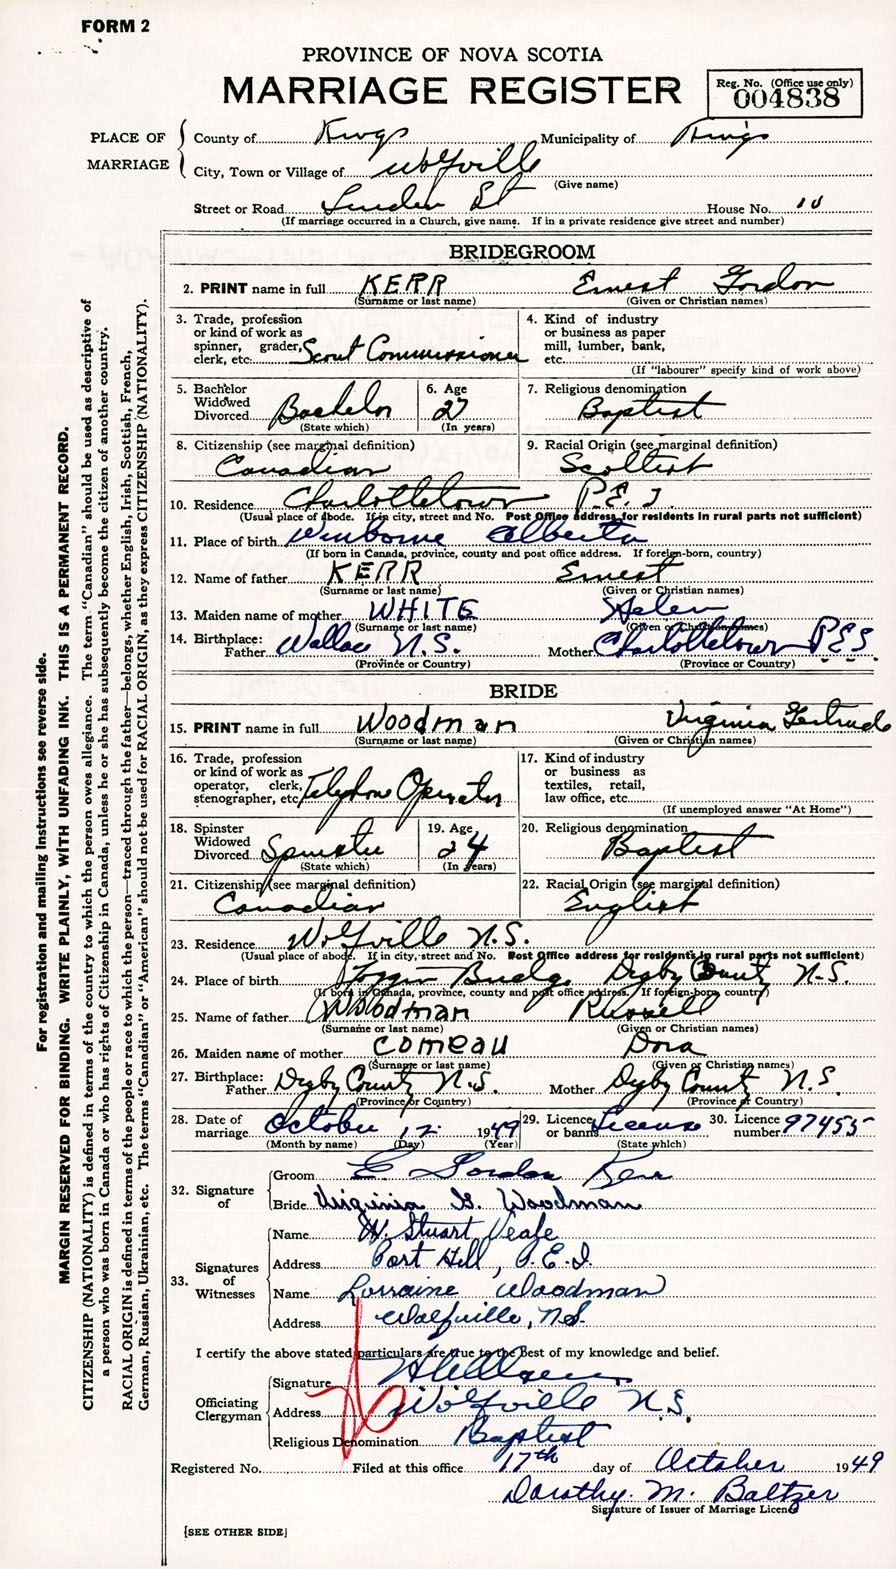 FORM 2
PROVINCE OF NOVA SCOTIA
MARRIAGE REGISTER
Reg. No. (Office use only)
004838
PLACE OF MARRIAGE
County of Kings Municipality of Kings
City, Town or Village of Wolfville
(Give name)
Street or Road Linden St House No. 10
(If marriage occurred in a Church, give name. If in a private residence give street and number)
BRIDEGROOM
2. PRINT name in full KERR Ernest Gordon
(Surname or last name) (Given or Christian names)
3. Trade, profession
or kind of work as
spinner, grader,
clerk, etc. Scout Commissioner
4. Kind of industry
or business as paper
mill, lumber, bank,
etc.
(If "labourer" specify kind of work above)
5. Bachelor
Widowed
Divorced Bachelor
(State which)
6. Age
27
(In years)
7. Religious denomination
Baptist
8. Citizenship (see marginal definition)
Canadian
9. Racial Origin (see marginal definition)
Scottish
10. Residence Charlottetown P.E.I
(Usual place of abode. If in city, street and No. Post Office address for residents in rural parts not sufficient)
11. Place of birth Wimborne Alberta
(If born in Canada, province, county and post office address. If foreign-born, country)
12. Name of father KERR Ernest
(Surname or last name) (Given or Christian names)
13. Maiden name of mother WHITE Helen
(Surname or last name) (Given or Christian names)
14. Birthplace:
Father Wallace N.S. Mother Charlottetown P.E.I.
(Province or Country) (Province or Country)
BRIDE
15. PRINT name in full Woodman Virginia Gertrude
(Surname or last name) (Given or Christian names)
16. Trade, profession
or kind of work as
operator, clerk,
stenographer, etc. Telephone Operator
17. Kind of industry
or business as
textiles, retail,
law office, etc.
(If unemployed answer "At Home")
18. Spinster
Widowed
Divorced Spinster
(State which)
19. Age
24
(In years)
20. Religious denomination
Baptist
21. Citizenship (see marginal definition)
Canadian
22. Racial Origin (see marginal definition)
English
23. Residence Wolfville N.S.
(Usual place of abode. If in city, street and No. Post Office address for residents in rural parts not sufficient)
24. Place of birth Joggin Bridge Digby County N.S.
(If born in Canada, province, county and post office address. If foreign-born, country)
25. Name of father Woodman Russell
(Surname or last name) (Given or Christian names)
26. Maiden name of mother COMEAU Dora
(Surname or last name) (Given or Christian names)
27. Birthplace:
Father Digby County N.S. Mother Digby County N.S.
(Province or Country) (Province or Country)
28. Date of
marriage October 12 1949
(Month by name) (Day) (Year)
29. Licence
or banns License
(State which)
30. Licence
number 97455
32. Signature of
Groom E. Gordon Kerr
Bride Virginia G. Woodman
33. Signatures of Witnesses
Name W. Stuart
Address Port Hill, P.E.I.
Name Lorraine Woodman
Address Wolfville, N.S.
I certify the above stated particulars are true to the Best of my knowledge and belief.
Officiating Clergyman
Signature
Address Wolfville N.S.
Religious Denomination Baptist
Registered No. Filed at this office 17th day of October 1949
Dorothy M. Baltzer
Signature of Issuer of Marriage Licence
[SEE OTHER SIDE]
For registration and mailing instructions see reverse side.
MARGIN RESERVED FOR BINDING. WRITE PLAINLY, WITH UNFADING INK. THIS IS A PERMANENT RECORD.
CITIZENSHIP (NATIONALITY) is defined in terms of the country to which the person owes allegiance. The term "Canadian" should be used as descriptive of
a person who was born in Canada or who has rights of Citizenship in Canada, unless he or she has subsequently become the citizen of another country.
RACIAL ORIGIN is defined in terms of the people or race to which the person—traced through the father—belongs, whether English, Irish, Scottish, French,
German, Russian, Ukrainian, etc. The terms "Canadian" or "American" should not be used for RACIAL ORIGIN, as they express CITIZENSHIP (NATIONALITY).